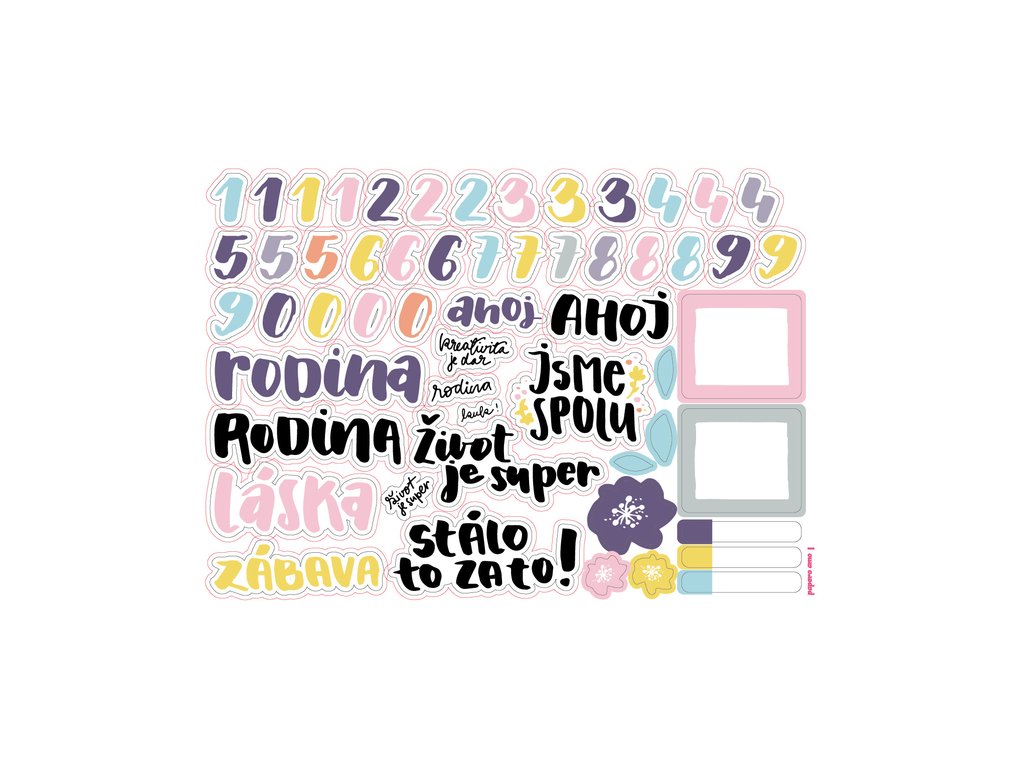 1 1 1 1 2 2 2 3 3 3 4 4 4
5 5 5 6 6 6 7 7 7 8 8 8 9 9
9 0 0 0 0 ahoj AHOJ
kreativita
je dar
rodina
rodina
JSME
SPOLU
RODINA
Život
je super
láska
život
je super
STÁLO
TO ZA TO!
ZÁBAVA
papero amo